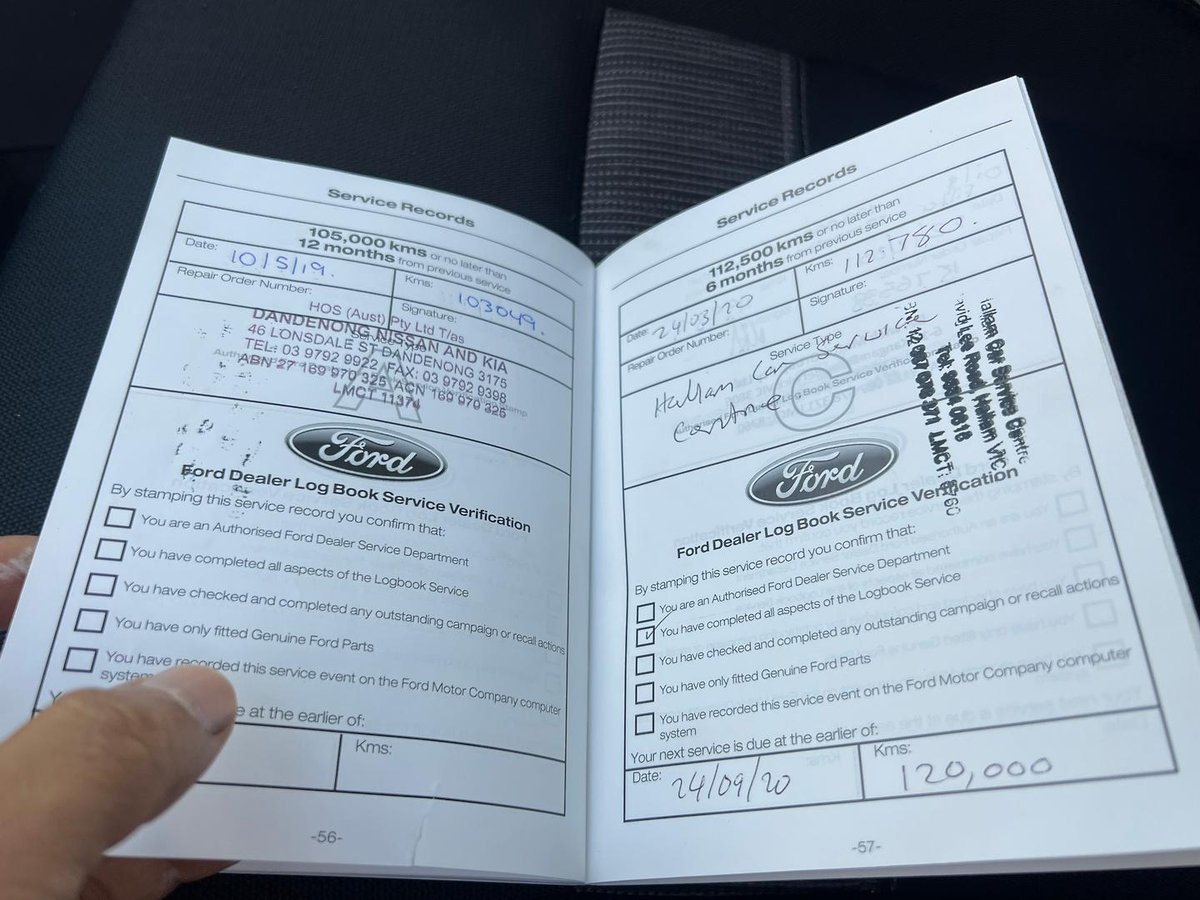 Service Records
105,000 kms or no later than
12 months from previous service
Date: 10/5/19.
Kms: 103049.
Repair Order Number:
Signature:
HOS (Aust) Pty Ltd T/as
DANDENONG NISSAN AND KIA
46 LONSDALE ST DANDENONG 3175
TEL: 03 9792 9922 FAX: 03 9792 9398
ABN 27 169 970 325 ACN 169 970 325
LMCT 11374
A
Ford
Ford Dealer Log Book Service Verification
By stamping this service record you confirm that:
You are an Authorised Ford Dealer Service Department
You have completed all aspects of the Logbook Service
You have checked and completed any outstanding campaign or recall actions
You have only fitted Genuine Ford Parts
You have recorded this service event on the Ford Motor Company computer
system
e at the earlier of:
Kms:
-56-
Service Records
112,500 kms or no later than
6 months from previous service
Date: 24/03/20
Kms:
Repair Order Number:
Signature:
Service Type
Hallam Car Service
Centre
C
Hallam Car Service Centre
Lee Road, Hallam VIC
Ford
Ford Dealer Log Book Service Verification
By stamping this service record you confirm that:
You are an Authorised Ford Dealer Service Department
You have completed all aspects of the Logbook Service
You have checked and completed any outstanding campaign or recall actions
You have only fitted Genuine Ford Parts
You have recorded this service event on the Ford Motor Company computer
system
Your next service is due at the earlier of:
Date: 24/09/20
Kms: 120,000
-57-